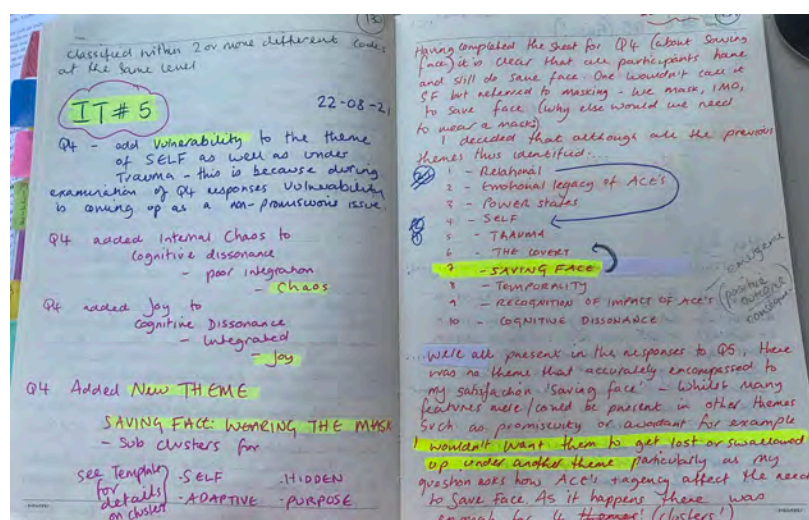 130
classified within 2 or more different codes
at the same level
IT#5
22-08-21
Q4 - add Vulnerability to the theme
of SELF as well as under
Trauma - this is because during
examination of Q4 responses Vulnerability
is coming up as a non-promiscuous issue.
Q4 added Internal Chaos to
Cognitive dissonance
- poor integration
- Chaos
Q4 added Joy to
Cognitive Dissonance
- Integrated
- Joy
Q4 Added New THEME
SAVING FACE: WEARING THE MASK
- Sub clusters for
see Template for details on clusters
- SELF - HIDDEN
- ADAPTIVE - PURPOSE
Having completed the sheet for Q4 (about Saving
face) it is clear that all participants have
and still do save face. One wouldn't call it
SF but referred to masking - we mask, IMO,
to save face (why else would we need
to wear a mask)
I decided that although all the previous
themes thus identified:...
1 - Relational
2 - Emotional legacy of ACE's
3 - Power states
4 - SELF
5 - TRAUMA
6 - THE COVERT
7 - SAVING FACE
8 - TEMPORALITY
9 - RECOGNITION OF IMPACT OF ACE's
10 - COGNITIVE DISSONANCE
(positive outcome
...were all present in the responses to Q5, there
was no theme that accurately encompassed to
my satisfaction 'saving face' - whilst many
features were/could be present in other themes
such as promiscuity or avoidant for example
I wouldn't want them to get lost or swallowed
up under another theme particularly as my
question asks how ACE's + agency affect the need
to Save Face. As it happens there was
enough for 4 themes! (clusters!)